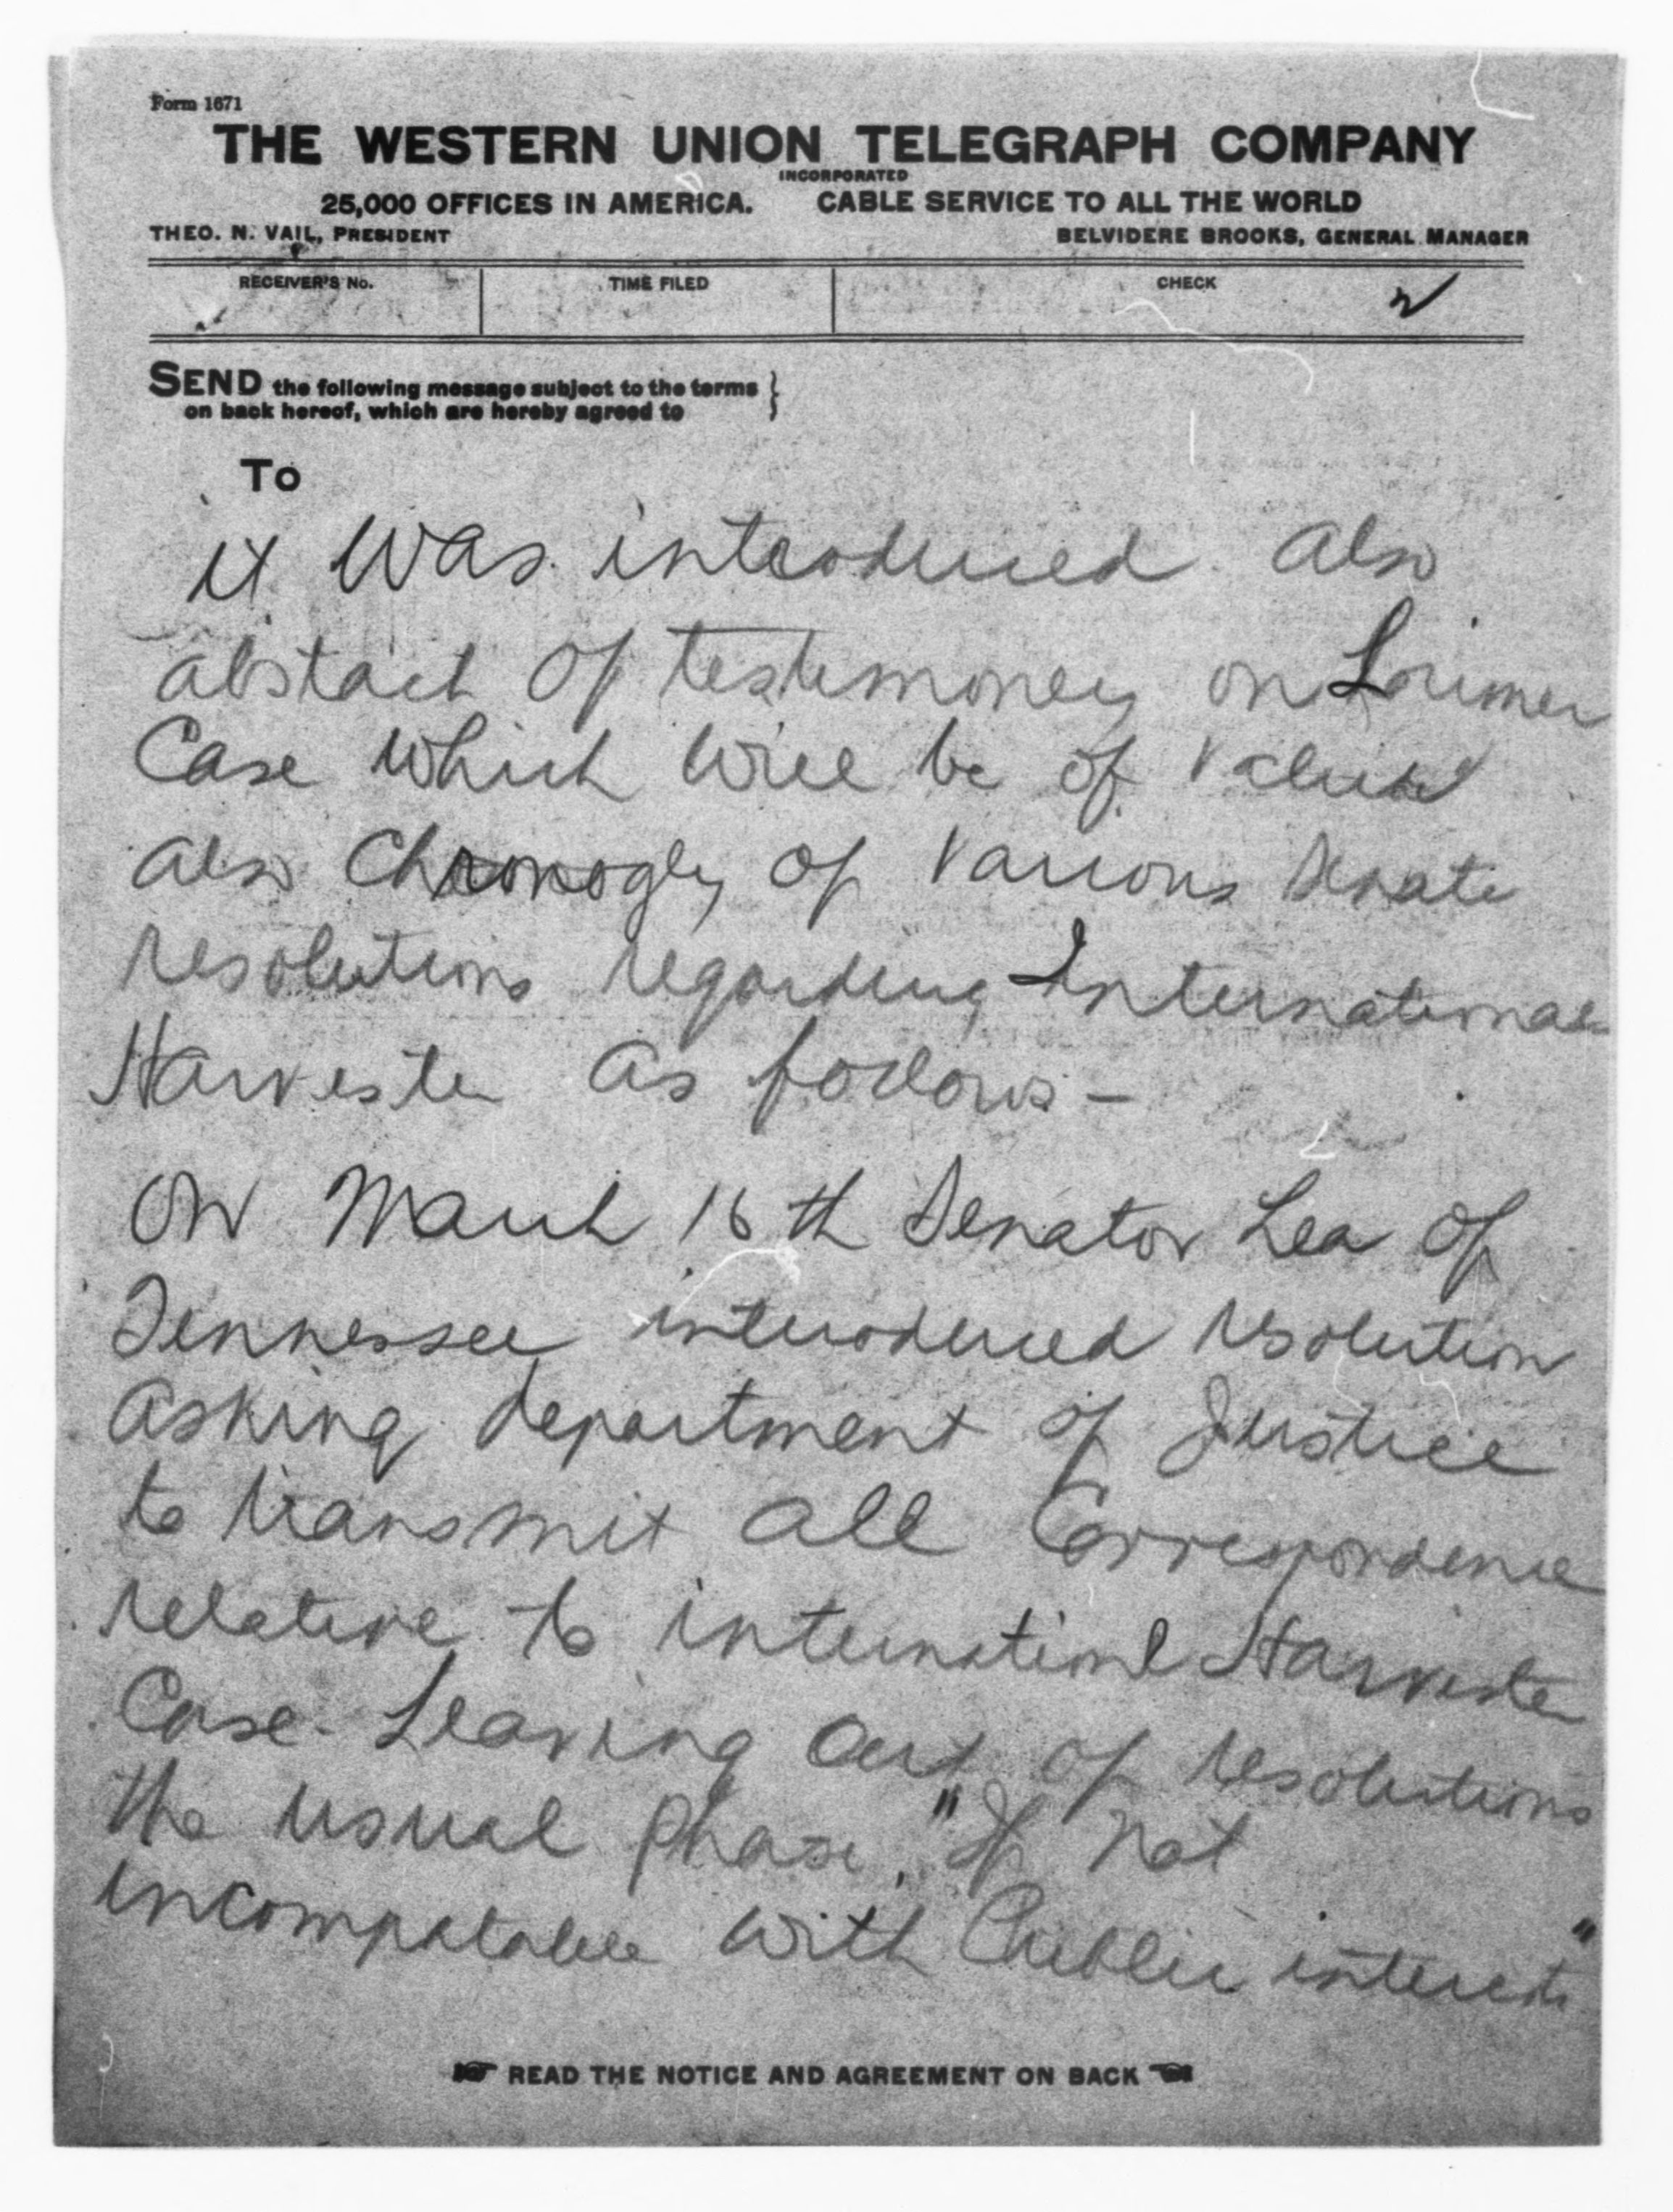 Form 1671
THE WESTERN UNION TELEGRAPH COMPANY
INCORPORATED
25,000 OFFICES IN AMERICA. CABLE SERVICE TO ALL THE WORLD
THEO. N. VAIL, PRESIDENT BELVIDERE BROOKS, GENERAL MANAGER
RECEIVER'S No. TIME FILED CHECK
SEND the following message subject to the terms
on back hereof, which are hereby agreed to
To
it was introduced. Also
abstact of testimoney on Lorimer
Case which will be of value
also Chronogly of various Senate
resolutions regarding International
Harvester as follows –
On March 16th Senator Lea of
Tennessee introduced resolution
asking department of Justice
to transmit all Correspondence
relative to internationl Harvester
Case. Leaving out of resolutions
the usual phase, "If not
incompatable with Public interest"
READ THE NOTICE AND AGREEMENT ON BACK